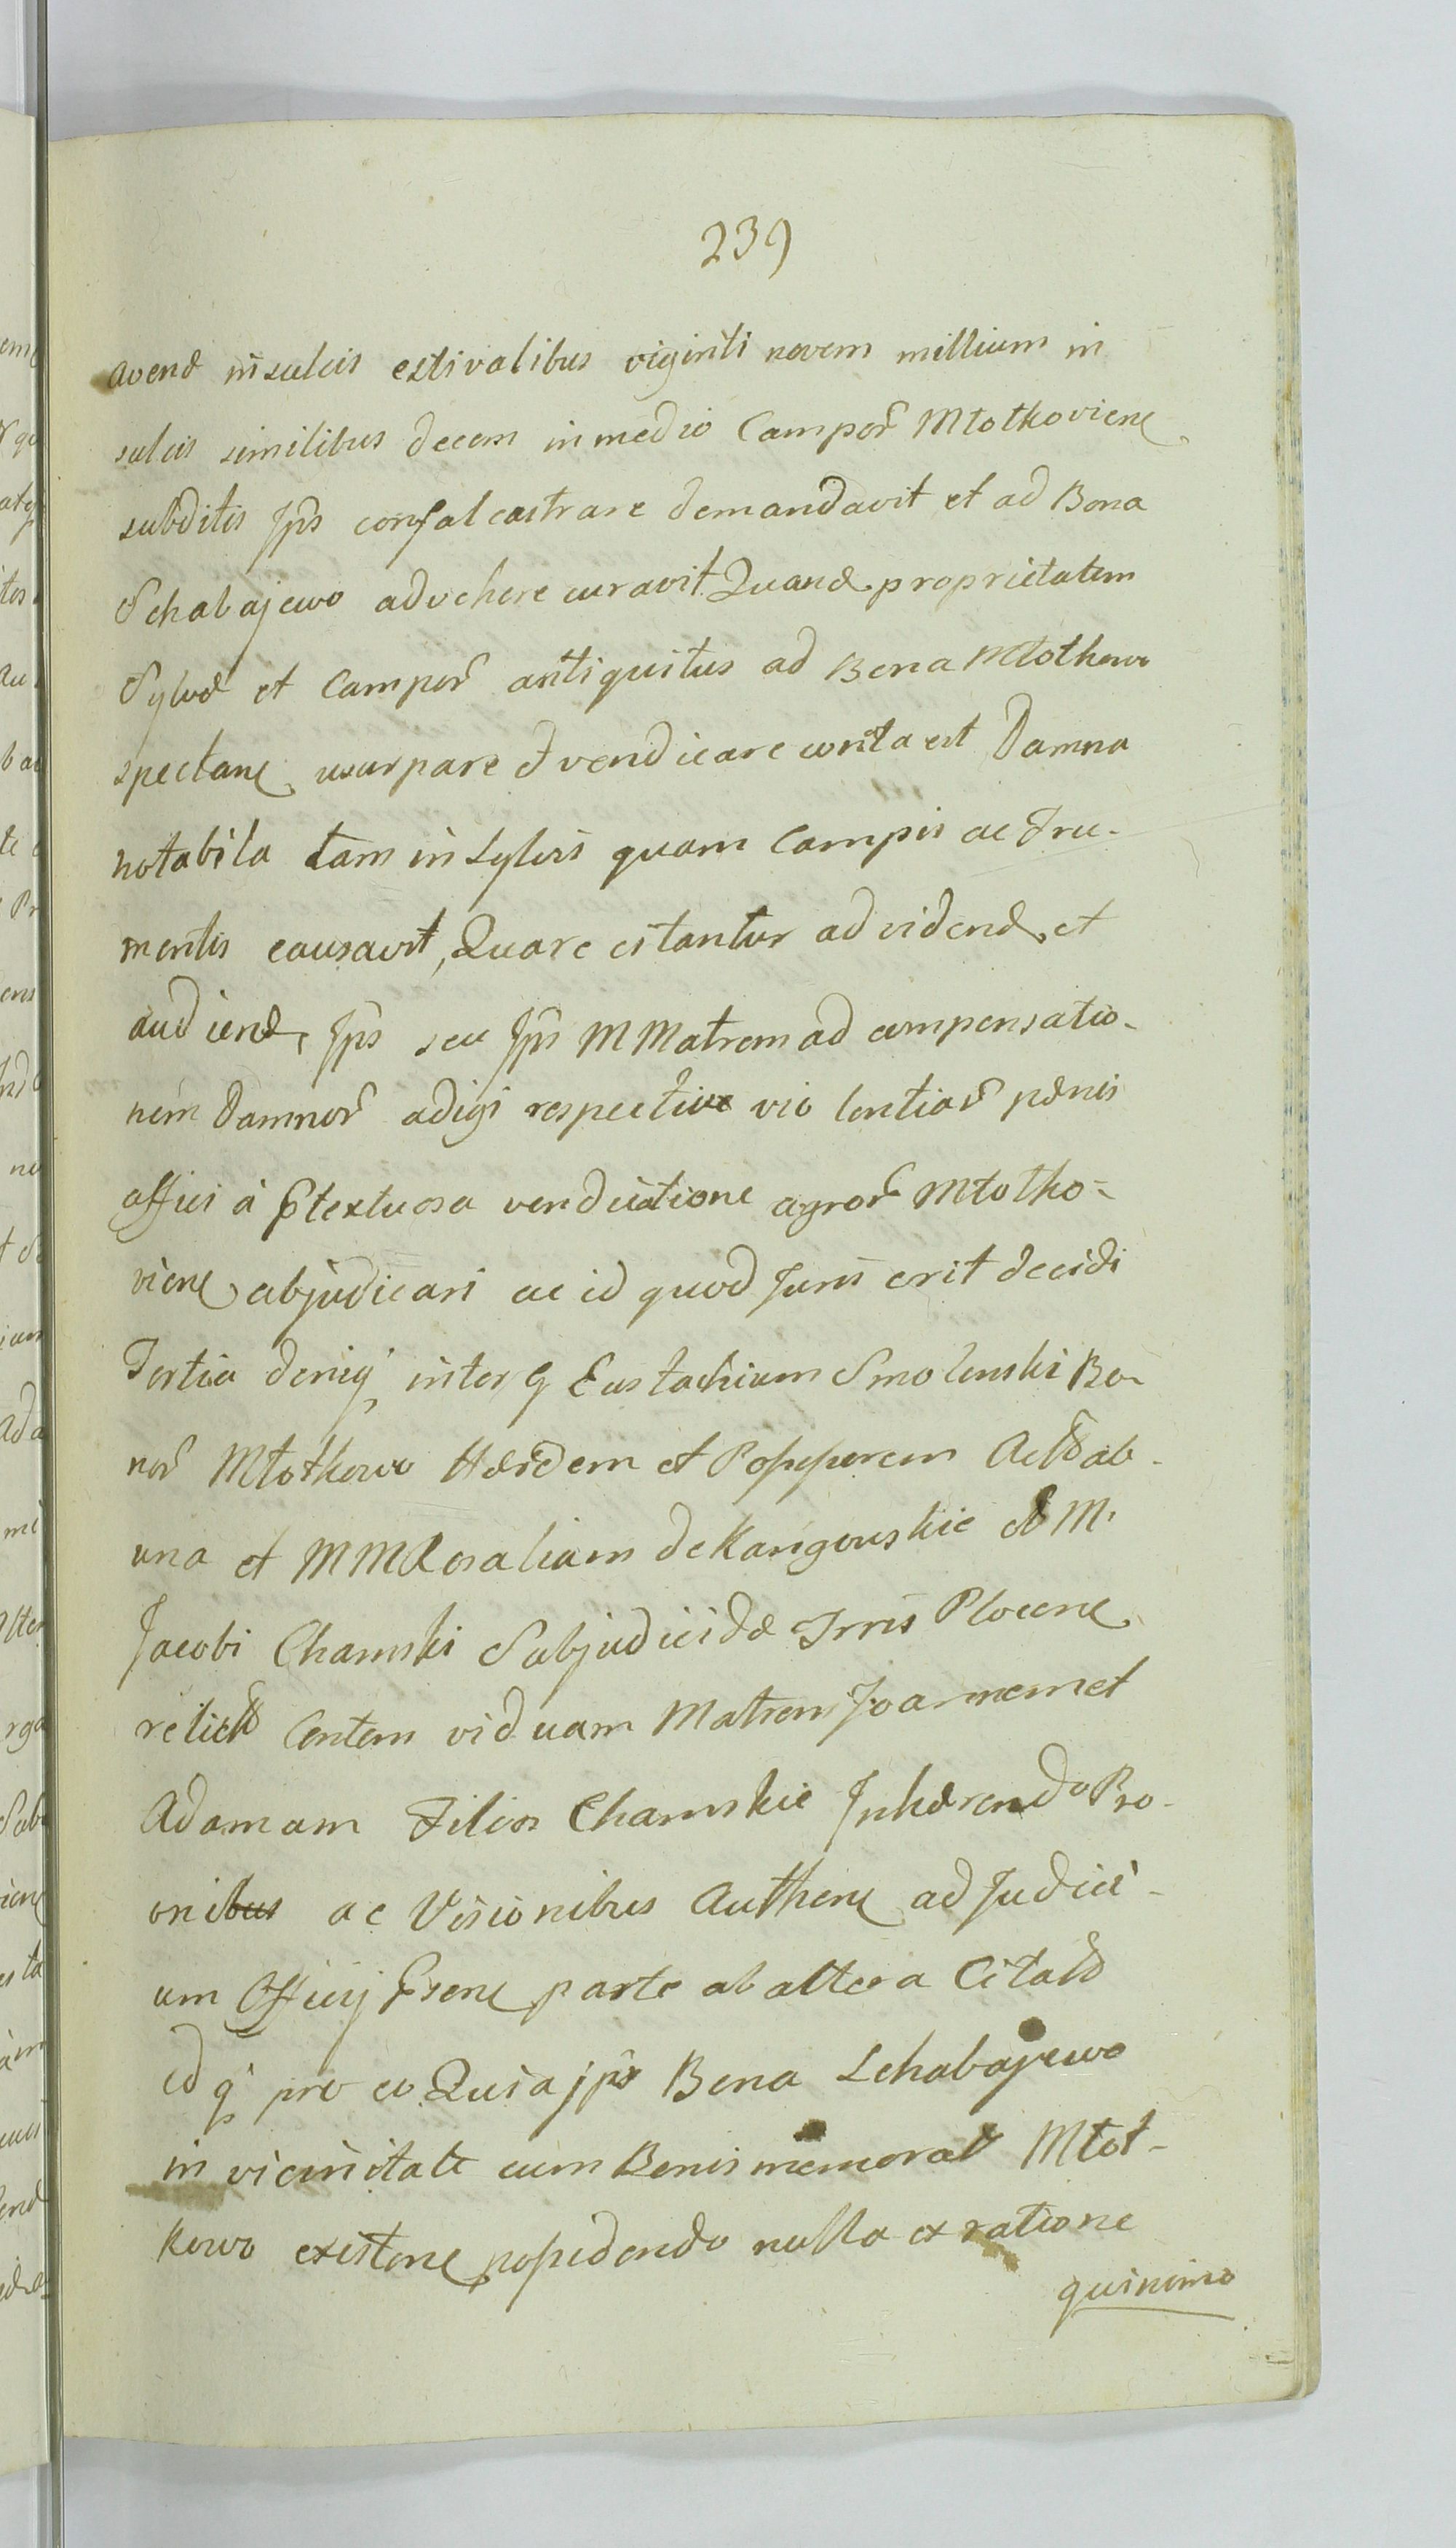 239
avenæ in sulcis estivalibus viginti novem millium in
sulcis similibus decem in medio Campor Młotkoviene
subditis Jps confalcastrare demandavit et ad Bona
Schabajewo advehere curavit Quandã proprietatem
Sylvæ et Campor antiquitus ad Bona Młotkowo
spectanc usurpare & vendicare conta est Damna
notabila tam in Sylvis quam Campis ac Fru-
mentis causavit, Quare citantur ad vidend et
audiend Jps seu Jps M Matrem ad compensatio-
nem Damnor adigi respective violentiar pænis
affici à Ptextuosa vendicatione agror Młotko-
viene abjudicari ac id quod Juris erit decidi
Tertia deniq inter G Eustachium Smolenski Bo-
nor Młotkowo Hæridem et Possessorem Act ab
una et M M Rosaliam de Karigowskie M.
Jacobi Chamski Subjudicidæ Trris Plocene
relict Contem viduam Matrem Joannem et
Adamam Filios Chamskie Inhærendo Pro-
onibus ac Visionibus Authene ad Judici-
um Officij Psene parte ab altera Citat
idq pro eo Quia jps Bona Schabajewo
in vicinitate cum Bonis memorat Młot-
kowo existene possidendo nulla ex ratione
quinimo